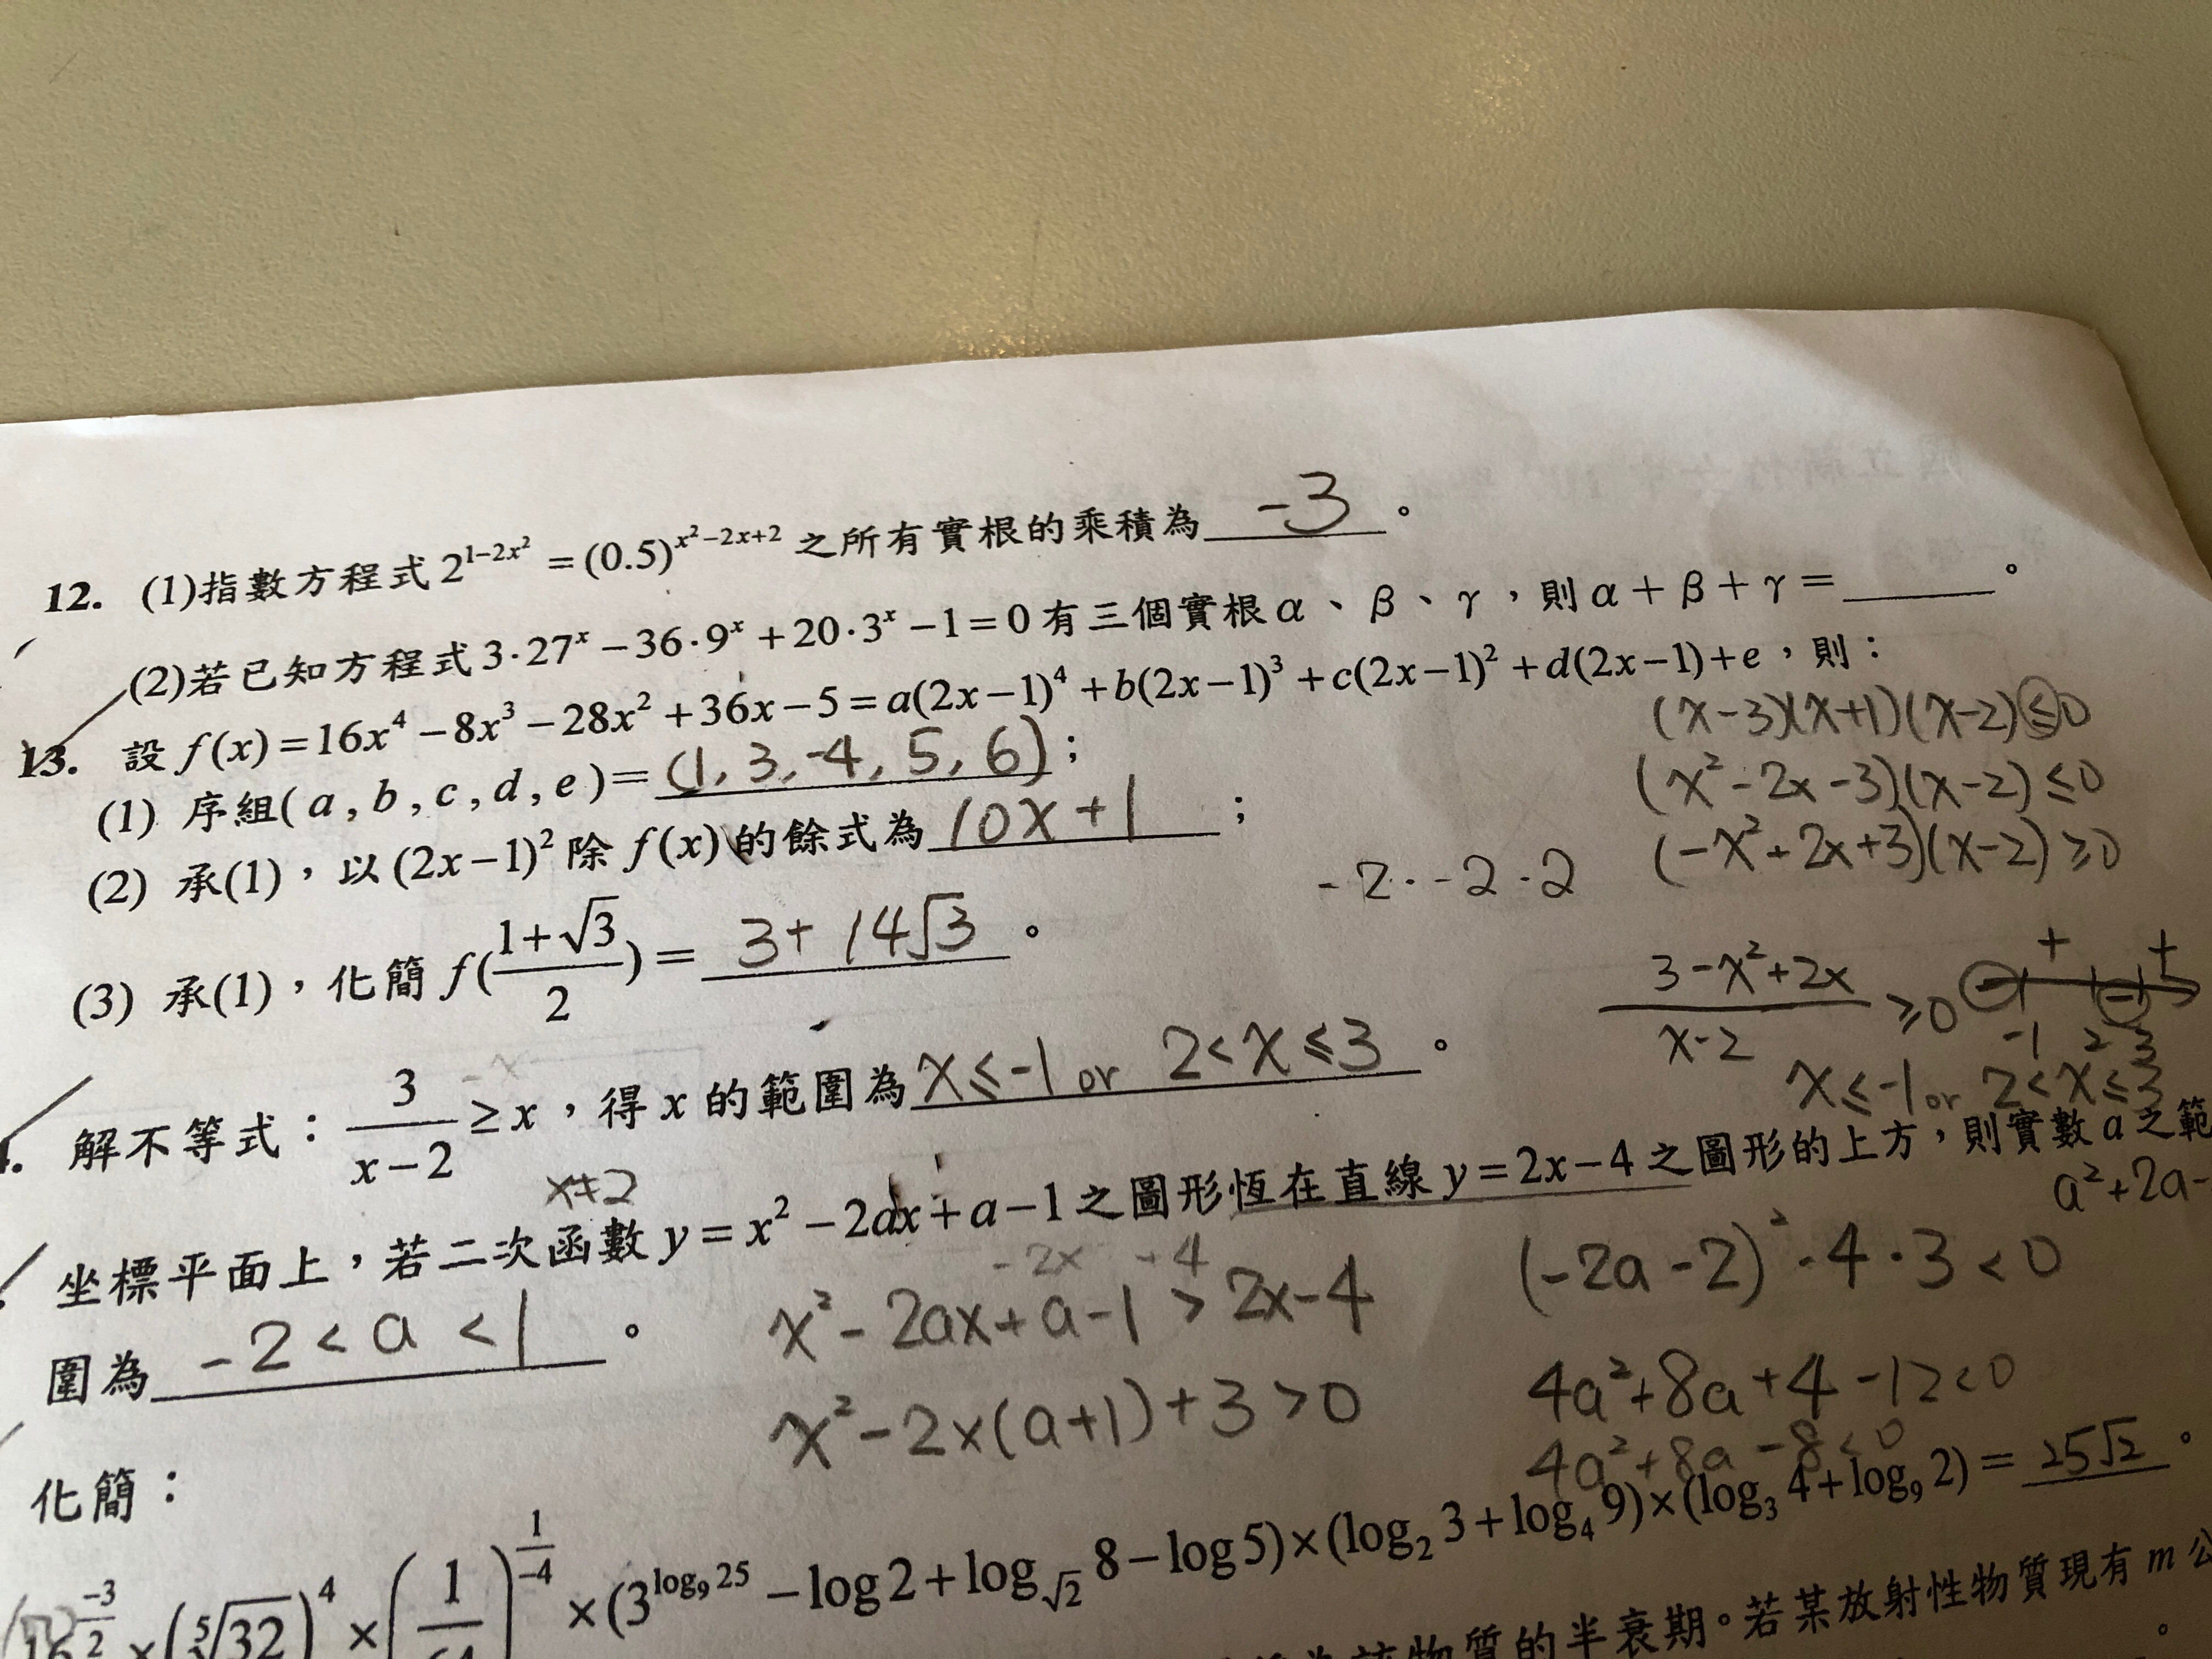 12. (1)指數方程式 2^{1-2x²} = (0.5)^{x²-2x+2} 之所有實根的乘積為 -3 。
(2)若已知方程式 3·27^x - 36·9^x + 20·3^x - 1 = 0 有三個實根 α、β、γ，則 α + β + γ = ______。
13. 設 f(x) = 16x⁴ - 8x³ - 28x² + 36x - 5 = a(2x-1)⁴ + b(2x-1)³ + c(2x-1)² + d(2x-1) + e，則：
(1) 序組(a, b, c, d, e) = (1, 3, -4, 5, 6)；
(2) 承(1)，以(2x-1)² 除 f(x) 的餘式為 10x+1 ；
(3) 承(1)，化簡 f(\frac{1+√3}{2}) = 3+14√3 。
(x-3)(x+1)(x-2)≤0
(x²-2x-3)(x-2)≤0
(-x²+2x+3)(x-2)≥0
-2·-2·2
\frac{3-x²+2x}{x-2} ≥0
- + - +
-1 2 3
x≤-1 or 2<x≤3
. 解不等式：\frac{3}{x-2} ≥ x，得 x 的範圍為 x≤-1 or 2<x≤3 。
-x
x≠2
坐標平面上，若二次函數 y = x² - 2ax + a - 1 之圖形恆在直線 y = 2x - 4 之圖形的上方，則實數 a 之範
圍為 -2<a<1 。
a²+2a-
-2x +4
x²-2ax+a-1>2x-4
x²-2x(a+1)+3>0
(-2a-2)²-4·3<0
4a²+8a+4-12<0
4a²+8a-8<0
化簡：
16^{\frac{-3}{2}} × (⁵√32)⁴ × (\frac{1}{64})^{\frac{1}{-4}} × (3^{log₉25} - log2 + log_{√2}8 - log5) × (log₂3 + log₄9) × (log₃4 + log₉2) = 25√2 。
物質的半衰期。若某放射性物質現有 m 公